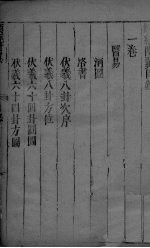 一卷
易
河圖
洛書
伏羲八卦次序
伏羲八卦方位
伏羲六十四卦圓圖
伏羲六十四卦方圖